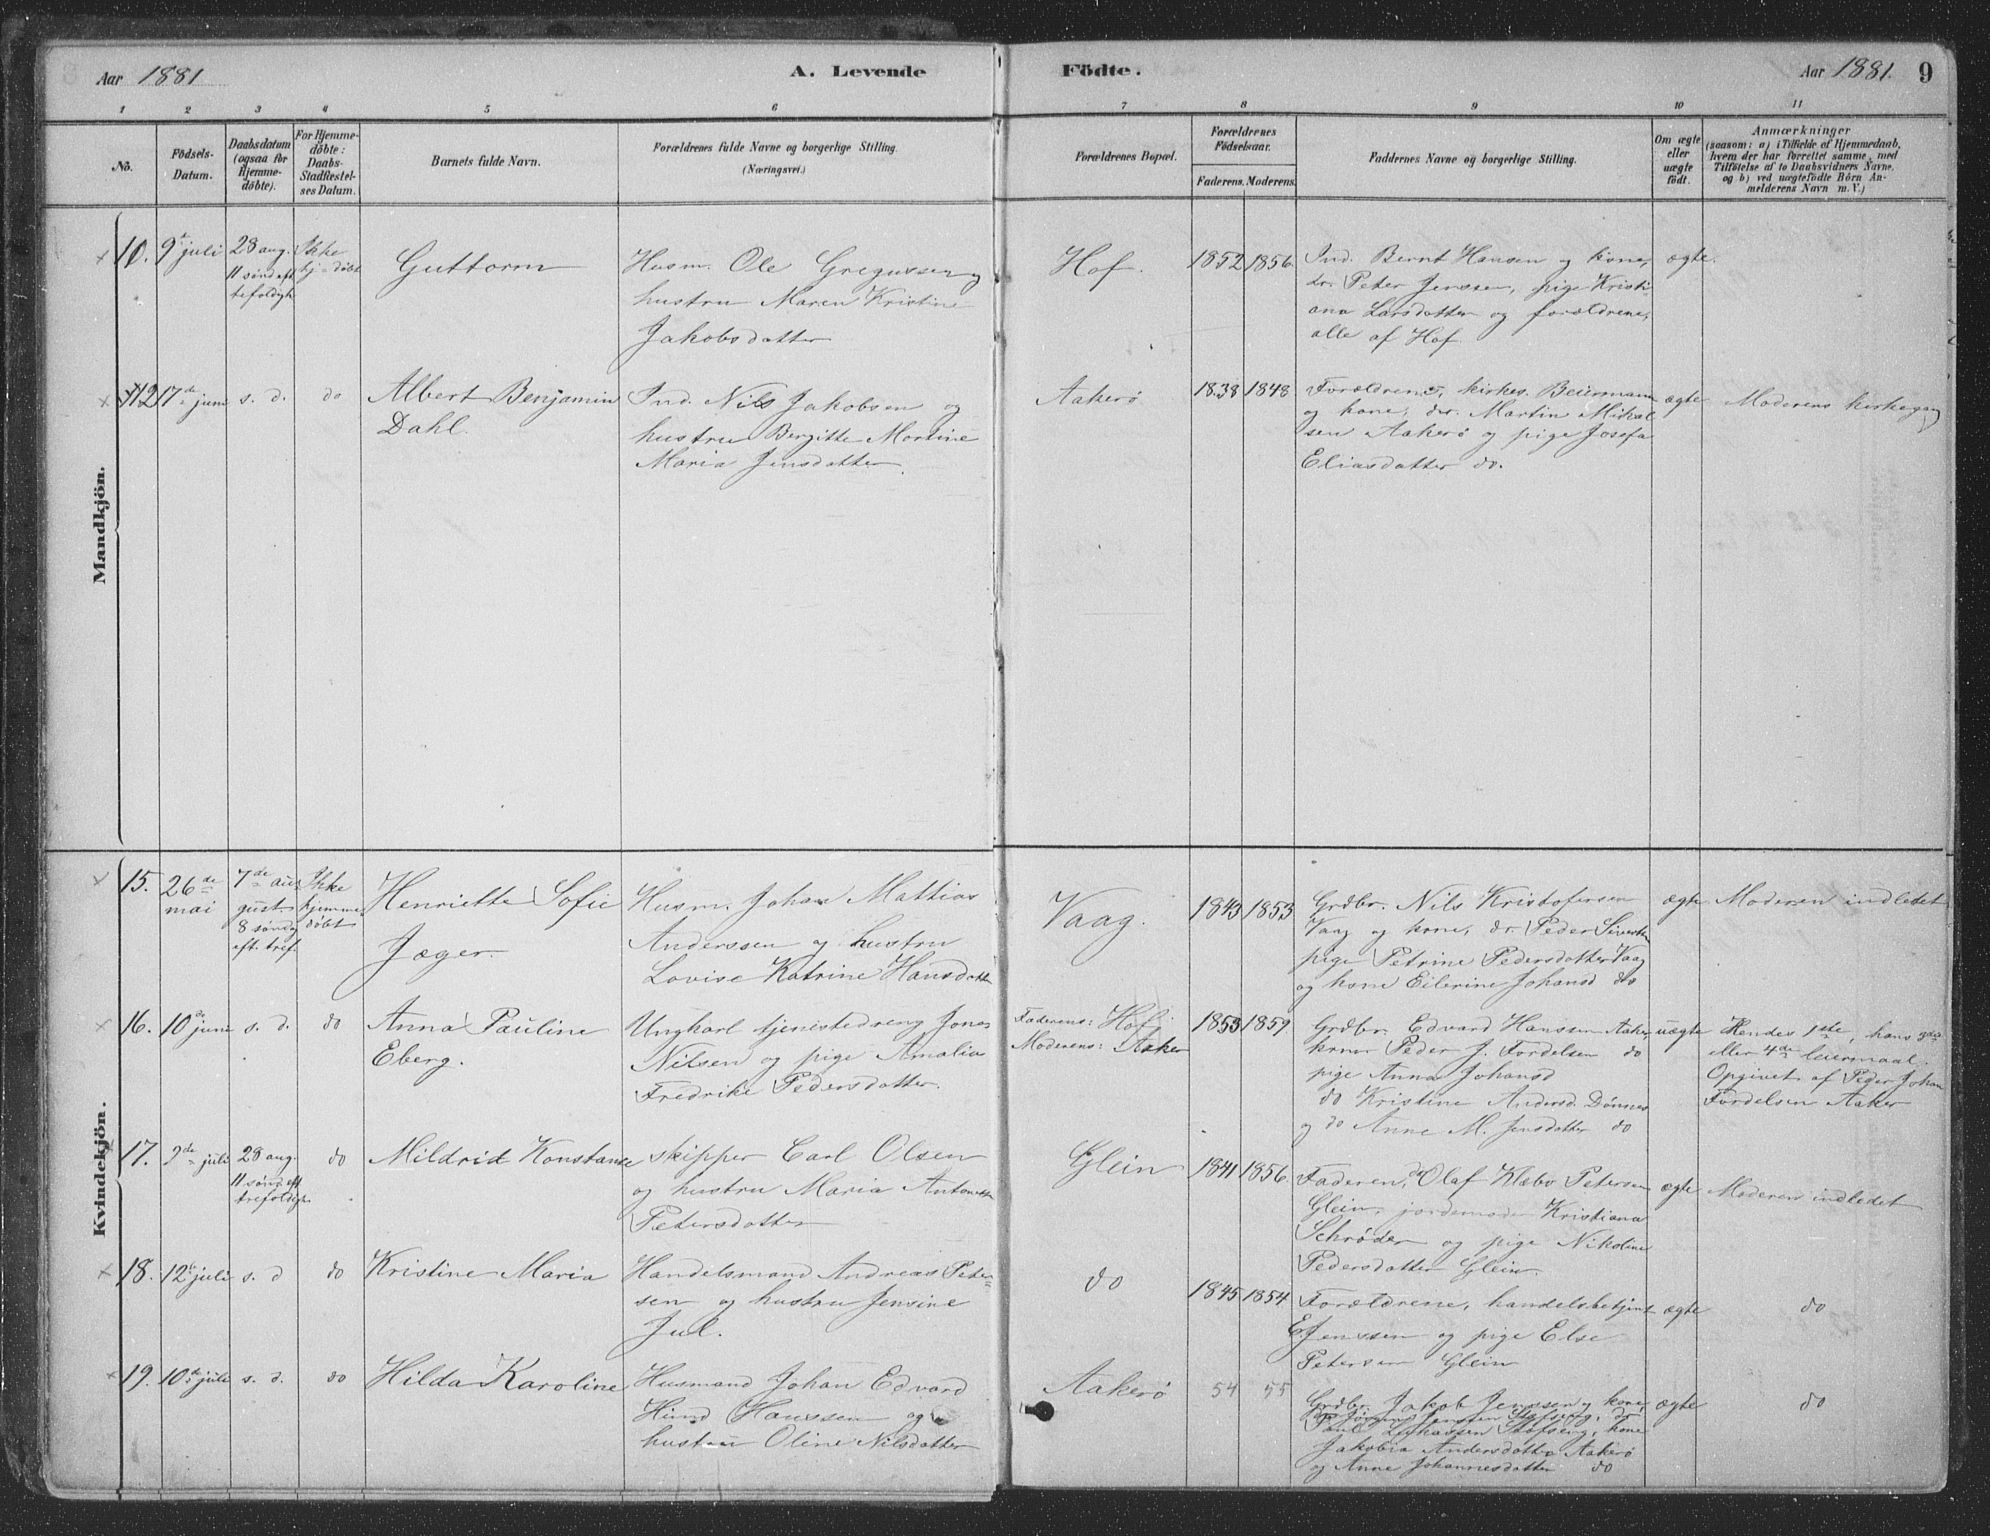 Aar 1881
A. Levende
Födte.
Aar 1881. 9
1 2 3 4 5 6 7 8 9 10 11
No.
Födsels-
Datum.
Daabsdatum
(ogsaa for
Hjemme-
döbte).
For Hjemme-
döbte:
Daabs-
Stadfæstel-
ses Datum.
Barnets fulde Navn.
Forældrenes fulde Navne og borgerlige Stilling.
(Næringsvei.)
Forældrenes Bopæl.
Forældrenes
Födselsaar.
Faderens. Moderens.
Faddernes Navne og borgerlige Stilling.
Om ægte
eller
uægte
født.
Anmærkninger
(saasom: a) i Tilfælde af Hjemmedaab,
hvem der har forrettet samme, med
Tilföielse af to Daabsvidners Navne,
og b) ved uægtefödte Börn An-
melderens Navn m. V.)
Mandkjön.
10. 9de juli
28 aug.
11 sönd eft
trefoldigh
Ikke
hj=döbt
Guttorm
Husm. Ole Gregussen og
hustru Maren Kristine
Jakobsdatter
Hof.
1852 1856.
Ind. Bernt Hansen og kone,
dr. Peter Jenssen, pige Kristi-
ana Larsdatter og forældrene,
alle af Hof.
ægte.
12 17de juni s. d. do
Albert Benjamin
Dahl.
Ind. Nils Jakobsen og
hustru Bergitte Martine
Maria Jensdatter.
Aakerö
1838 1848
Forældrene, kirkes. Beiermann
og kone, dr. Martin Mikal
sen Aakerö og pige Josefa
Eliasdatter do.
ægte
Moderens kirkegang
Kvindekjön.
15. 26de
mai
7de au-
gust.
8 söndg
eft. tref.
Ikke
hjemme
döbt
Henriette Sofie
Jæger.
Husm. Johan Mattias
Anderssen og hustru
Lovise Katrine Hansdatter
Vaag.
1843 1853
Grdbr. Nils Kristofersen
Vaag og kone, dr. Peder Sivertsen
pige Petrine Pedersdatter Vaag
og kone Eilerine Johansd do
ægte
Moderen indledet
16. 10de juni s. d. do
Anna Pauline
Eberg.
Ungkarl tjenestedreng Jonas
Nilsen og pige Amalia
Fredrike Pedersdatter.
Faderens: Hof.
Moderens: Aaker
1853 1859
Grdbr. Edvard Hanssen Aaker,
Peder J. Fordelsen do
pige Anna Johansd
do Kristine Andersd. Dönnes
og do Anne M. Jensdatter do
uægte
Hendes 1ste, hans 3die
eller 4de leiermaal.
Opgivet af Peder Johan
Fordelsen Aaker
17. 9de juli
28 aug.
11 sönd eft
trefoldigh
do
Mildrid Konstanse
skipper Carl Olsen
og hustru Maria Antonette
Petersdatter
Glein
1841 1856.
Faderen, dr Olaf Klæbo Petersen
Glein, jordemoder Kristiana
Schrøder og pige Nikoline
Pedersdatter Glein.
ægte
Moderen indledet
18. 12te juli s. d do
Kristine Maria
Handelsmand Andreas Peter-
sen og hustru Jensine
Jul.
do
1845 1854
Forældrene, handelsbetjent
E Jenssen og pige Else
Petersen Glein
ægte
do
19. 10de juli s. d. do
Hilda Karoline
Husmand Johan Edvard
Hind Hanssen og
hustru Oline Nilsdatter
Aakerö
54 55
Grdbr. Jakob Jenssen og kone,
Jakobia Andersdatter Aakerö
og Anne Johannesdatter do
ægte
do